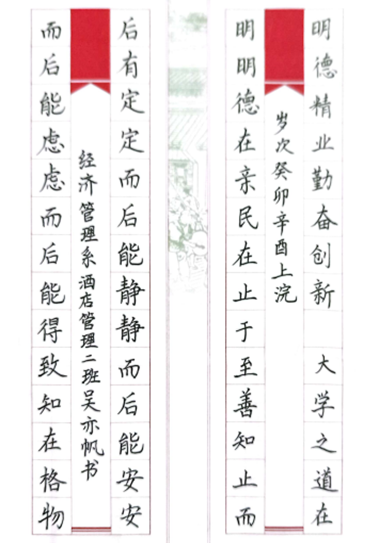 明德精业勤奋创新 大学之道在
岁次癸卯辛酉上浣
明明德在亲民在止于至善知止而
后有定定而后能静静而后能安安
经济管理系酒店管理二班吴亦帆书
而后能虑虑而后能得致知在格物